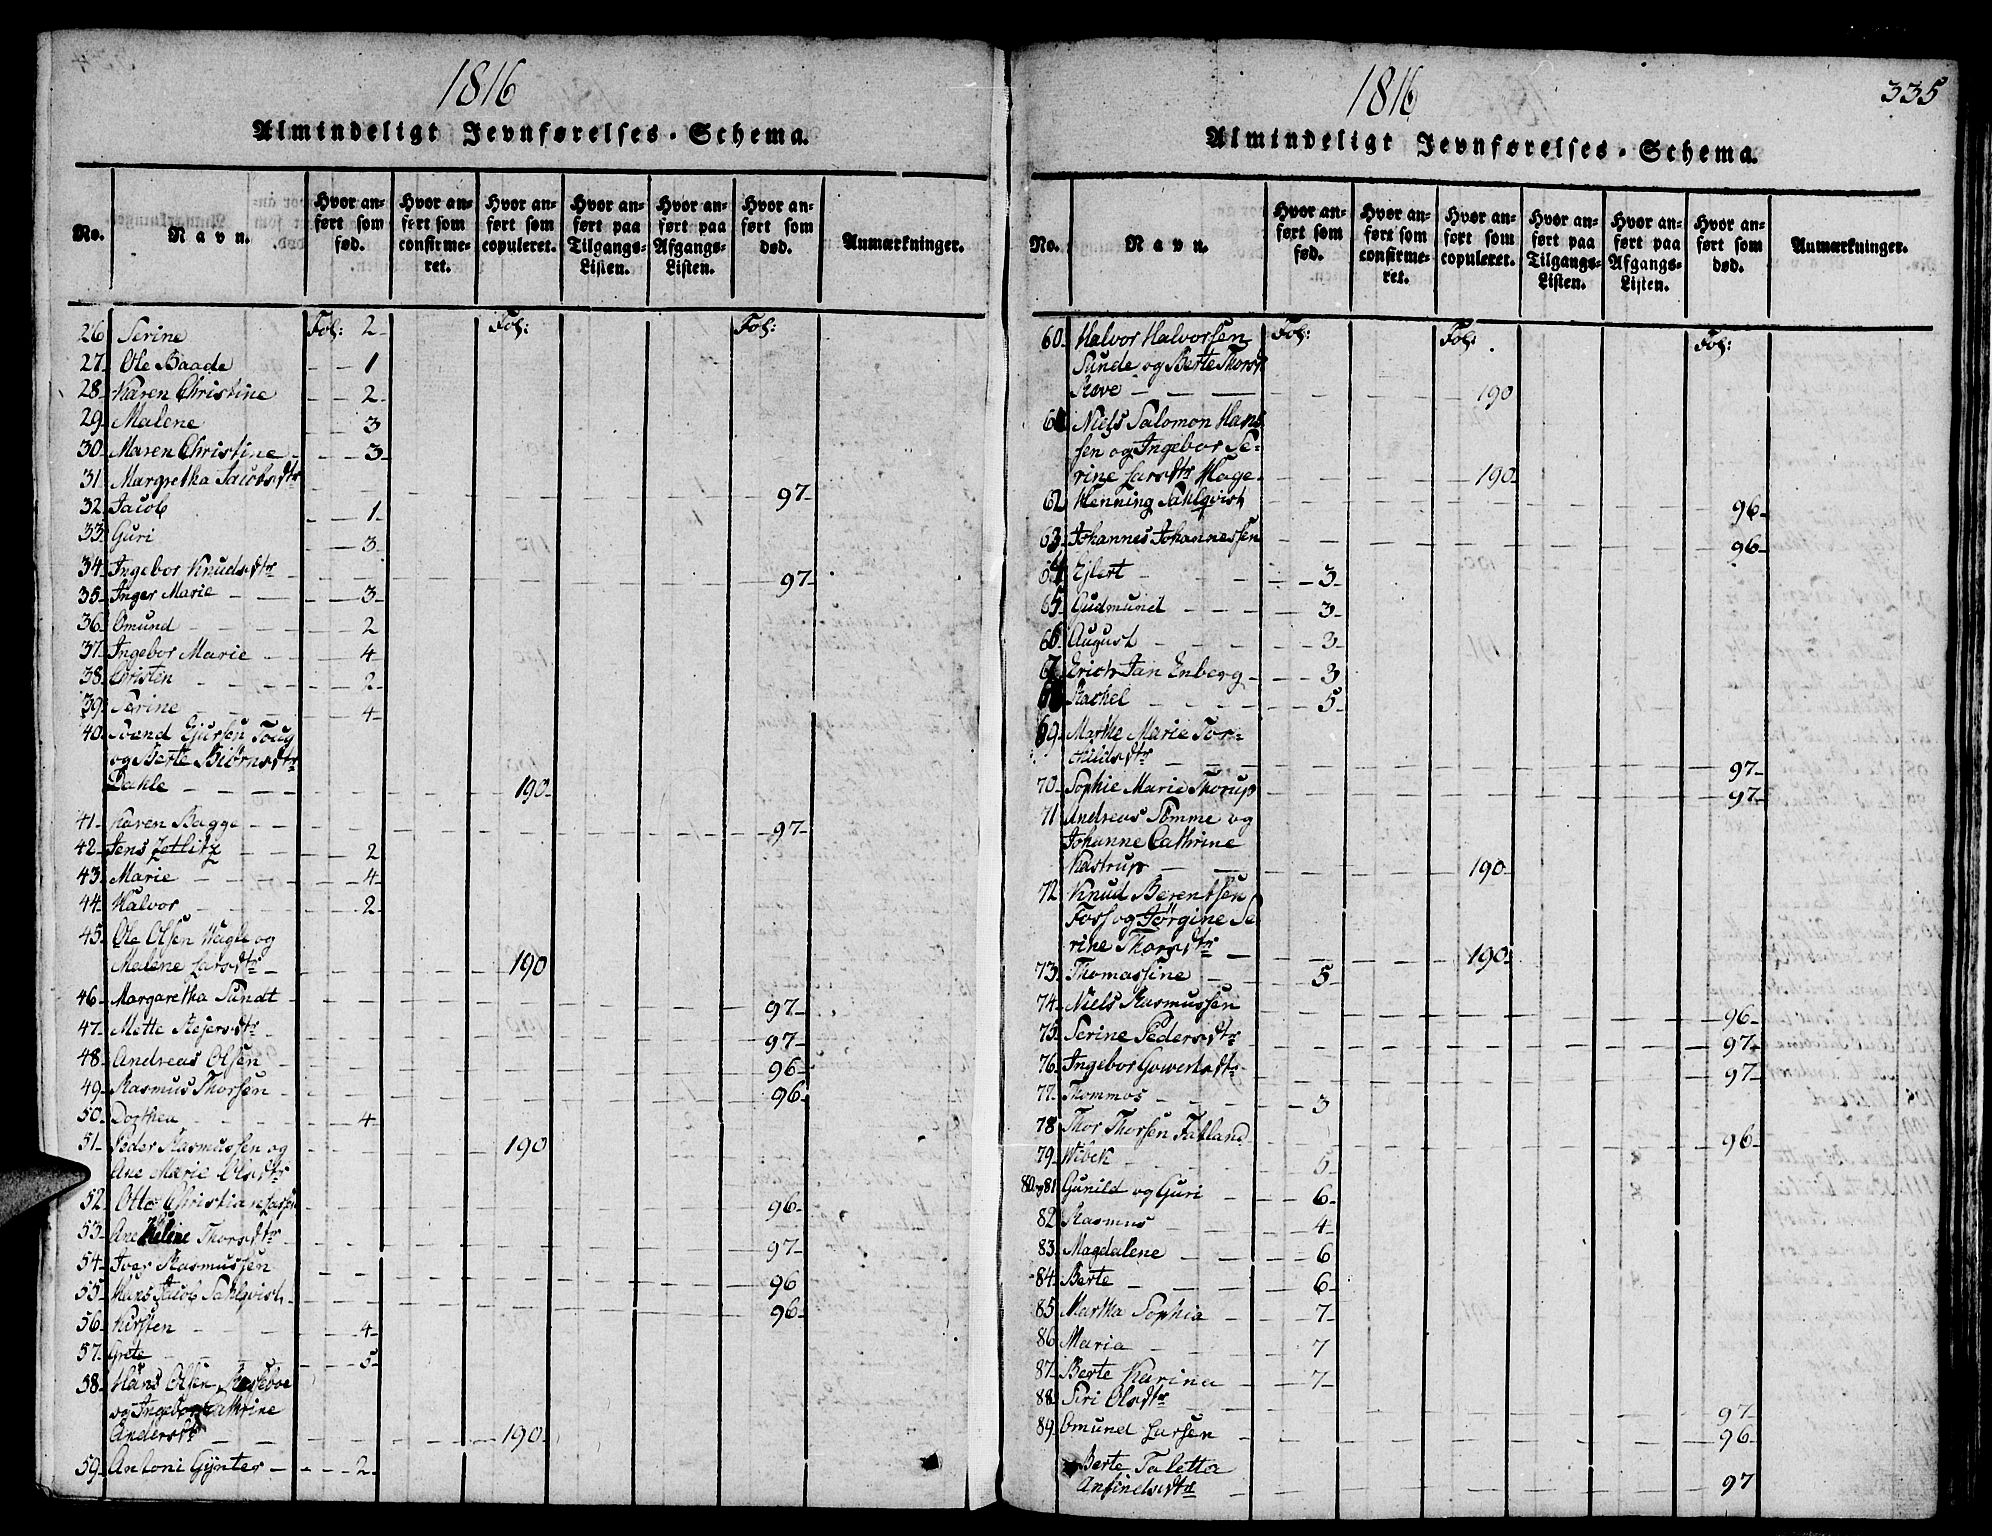 1816
Almindeligt Jevnførelses-Schema.
No.
Navn.
Hvor anført som fød.
Hvor anført som confirmeret.
Hvor anført som copuleret.
Hvor anført paa Tilgangs-Listen.
Hvor anført paa Afgangs-Listen.
Hvor anført som død.
Anmærkninger.
26 Serine Fol: 2 Fol: Fol:
27 Ole Baade 1
28 Karen Christine 2
29 Malene 3
30 Maren Christine 3
31 Margretha Jacobsdtr 97
32 Jacob 1
33 Guri 3
34 Ingebor Knudsdtr 97
35 Inger Marie 3
36 Omund 2
37 Ingebor Marie 4
38 Christen 2
39 Serine 4
40 Svend Gjursen Toug
og Berte Biörnsdtr
Dahle 190
41 Karen Bagge 97
42 Jens Zetlitz 2
43 Marie 4
44 Halvor 2
45 Ole Olsen Hagle og
Malene Larsdtr 190
46 Margaretha Sundt 97
47 Mette Rejersdtr 97
48 Andreas Olsen 96
49 Rasmus Thorsen 96
50 Dorthea 4
51 Peder Rasmussen og 190
Ane Marie Olsdtr
52 Otto Christian 96
53 Ane Heline Thorsdtr 97
54 Iver Rasmussen 96
55 Hans Jacob Sahlqvist 96
56 Kirsten 4
57 Grete 5
58 Hans Olsen
og Ingebor Cathrine
Andersdtr 190
59 Antoni Gÿnter 2
1816
335
Almindeligt Jevnførelses-Schema.
No.
Navn.
Hvor anført som fød.
Hvor anført som confirmeret.
Hvor anført som copuleret.
Hvor anført paa Tilgangs-Listen.
Hvor anført paa Afgangs-Listen.
Hvor anført som død.
Anmærkninger.
60 Halvor Halvorsen Fol: Fol: Fol:
Sunde og Berte Thorsd
Røve 190
61 Niels Salomon Hans
sen og Ingebor Se-
rine Larsdtr Hage 190
62 Henning Sahlqvist 96
63 Johannes Johannessen 96
64 Ejlert 3
65 Gudmund 3
66 August 3
67 Erich Jan Enberg 3
68 Rachel 5
69 Marthe Marie Tor-
kildsdtr 97
70 Sophie Marie Thorup 97
71 Andreas Sömme og
Johanne Cathrine
Kastrup 190
72 Knud Berentsen
Foss og Jörgine Se
rine Thorsdtr 190
73 Thomassine 5
74 Niels Rasmussen 96
75 Serine Pedersdtr 97
76 Ingebor Gowertsdtr 97
77 Thommas 3
78 Thor Thorsen Fatland 96
79 Wibek 5
80 og 81 Gunild og Guri 6
82 Rasmus 4
83 Magdalene 6
84 Berte 6
85 Martha Sophia 7
86 Maria 7
87 Berte Karina 7
88 Siri Olsdtr 97
89 Omund Larsen 96
Berte Taletta
Anfindsdtr 97